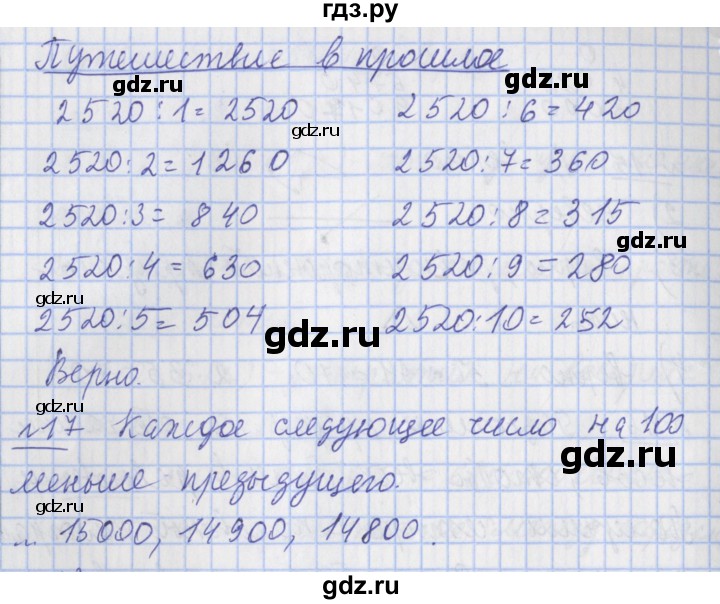 гдз.ру
Путешествие в прошлое
gdz.ru
2520:1=2520
gdz.ru
2520:6=420
2520:2=1260
gdz.ru
2520:7=360
2520:3=840
2520:8=315
gdz.ru
2520:4=630
2520:9=280
gdz.ru
2520:5=504
gdz.ru
2520:10=252
Верно.
gdz.ru
№17 Каждое следующее число на 100
gdz.ru
меньше предыдущего.
gdz.ru
... 15000, 14900, 14800.
gdz.ru
gdz.ru